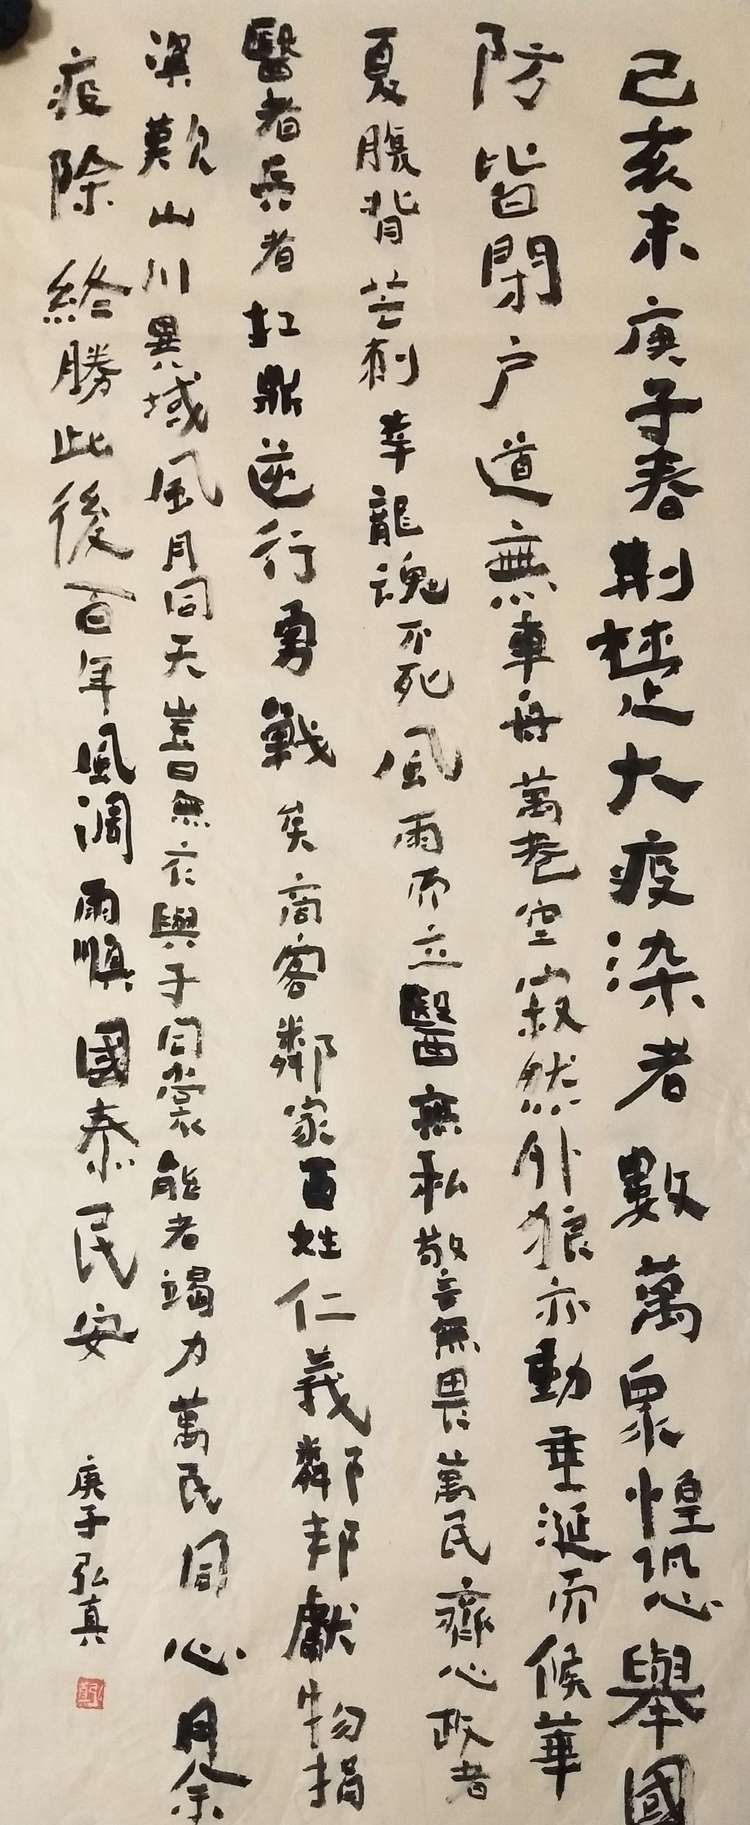 己亥末庚子春荆楚大疫染者數萬眾惶恐舉國
防皆閉户道無車舟萬巷空寂然外狼亦動垂涎而候華
夏腹背芒刺幸龍魂不死風雨而立醫無私警無畏萬民齊心政者
醫者兵者扛鼎逆行勇戰矣商客鄰家百姓仁義鄰邦獻物捐
梁歎山川異域風月同天豈曰無衣與子同裳能者竭力萬民同心月余
疫除終勝此後百年風調雨順國泰民安
庚子弘真